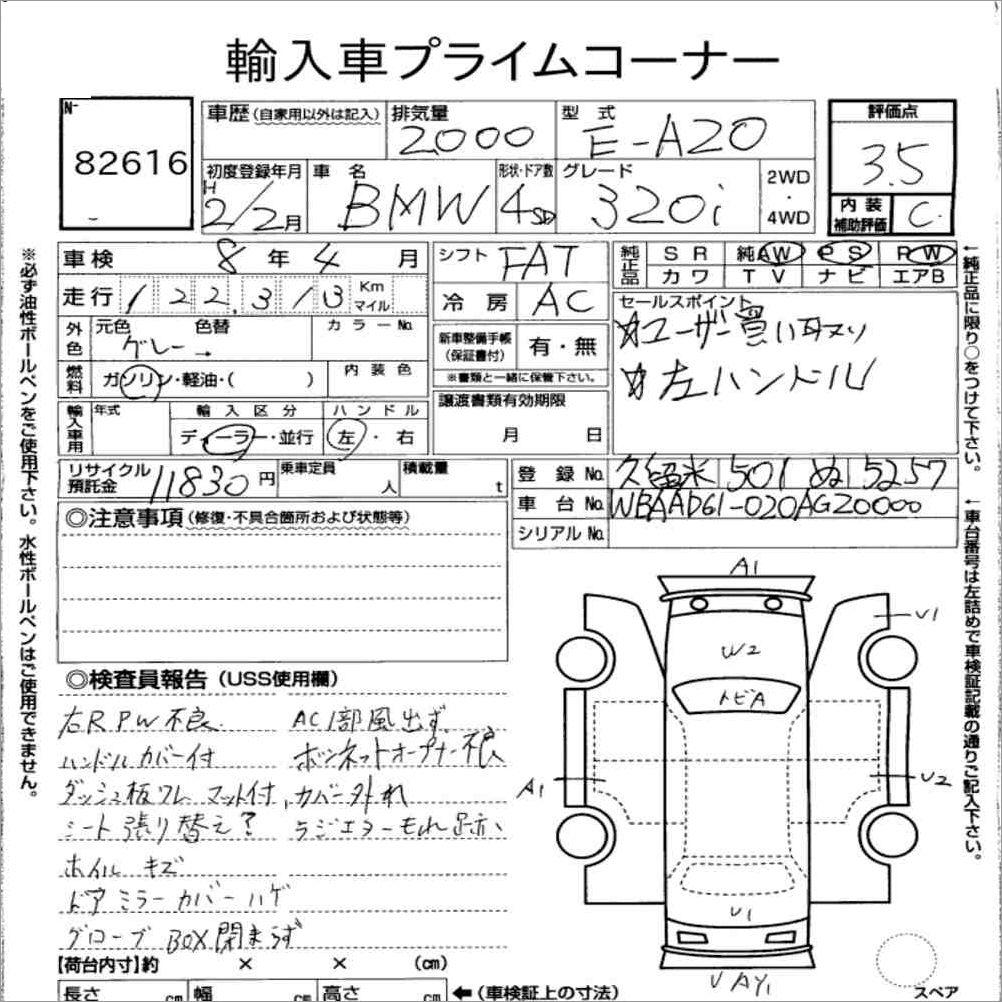 輸入車プライムコーナー
No.
82616
車歴(自家用以外は記入)
排気量
2000
型 式
E-A20
評価点
3.5
初度登録年月
H
2/2月
車 名
BMW
形状・ドア数
4SD
グレード
320i
2WD
・
4WD
内 装
補助評価
C
車検 8 年 4 月
シフト FAT
純正品
SR 純AW PS RW
カワ TV ナビ エアB
走行 122,313 Km マイル
冷房 AC
セールスポイント
☆ユーザー買い取り
☆左ハンドル
外色
元色 色替
グレー→
カラーNo.
新車整備手帳
(保証書付)
有・無
※書類と一緒に保管下さい。
燃料
ガソリン・軽油・( )
内装色
輸入車用
年式
輸入区分
ディーラー・並行
ハンドル
左・右
譲渡書類有効期限
月 日
リサイクル
預託金
11830円
乗車定員
人
積載量
t
登録No. 久留米 501 ぬ 5257
車台No. WBAAD61-020AG20000
シリアルNo.
◎注意事項(修復・不具合箇所および状態等)
◎検査員報告(USS使用欄)
右R PW不良 AC1部風出ず
ハンドルカバー付 ボンネットオープナー不良
ダッシュ板ワレ マット付,カバー外れ
シート張り替え? ラジエターもれ跡
ホイルキズ
ドアミラーカバーハゲ
グローブBOX閉まらず
【荷台内寸】約 × × (cm)
長さ cm 幅 cm 高さ cm ←(車検証上の寸法)
A1
V1
W2
トビA
A1
U2
U1
V AY1
スペア
※必ず油性ボールペンをご使用下さい。水性ボールペンはご使用できません。
←純正品に限り○をつけて下さい。
←車台番号は左詰めで車検証記載の通りご記入下さい。